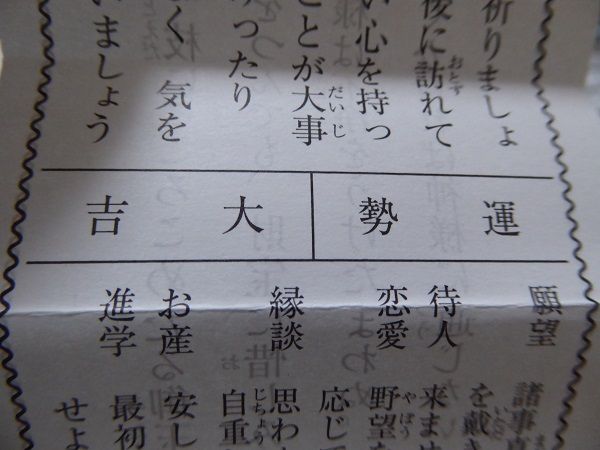 祈りましょ
後に訪れて
い心を持っ
ことが大事
ったり
く 気を
いましょう
運勢 大吉
願望
諸事
を戴き
待人 来ませ
恋愛 野望を
応じて
縁談 思わ
自重
お産 安し
進学 最初
せよ